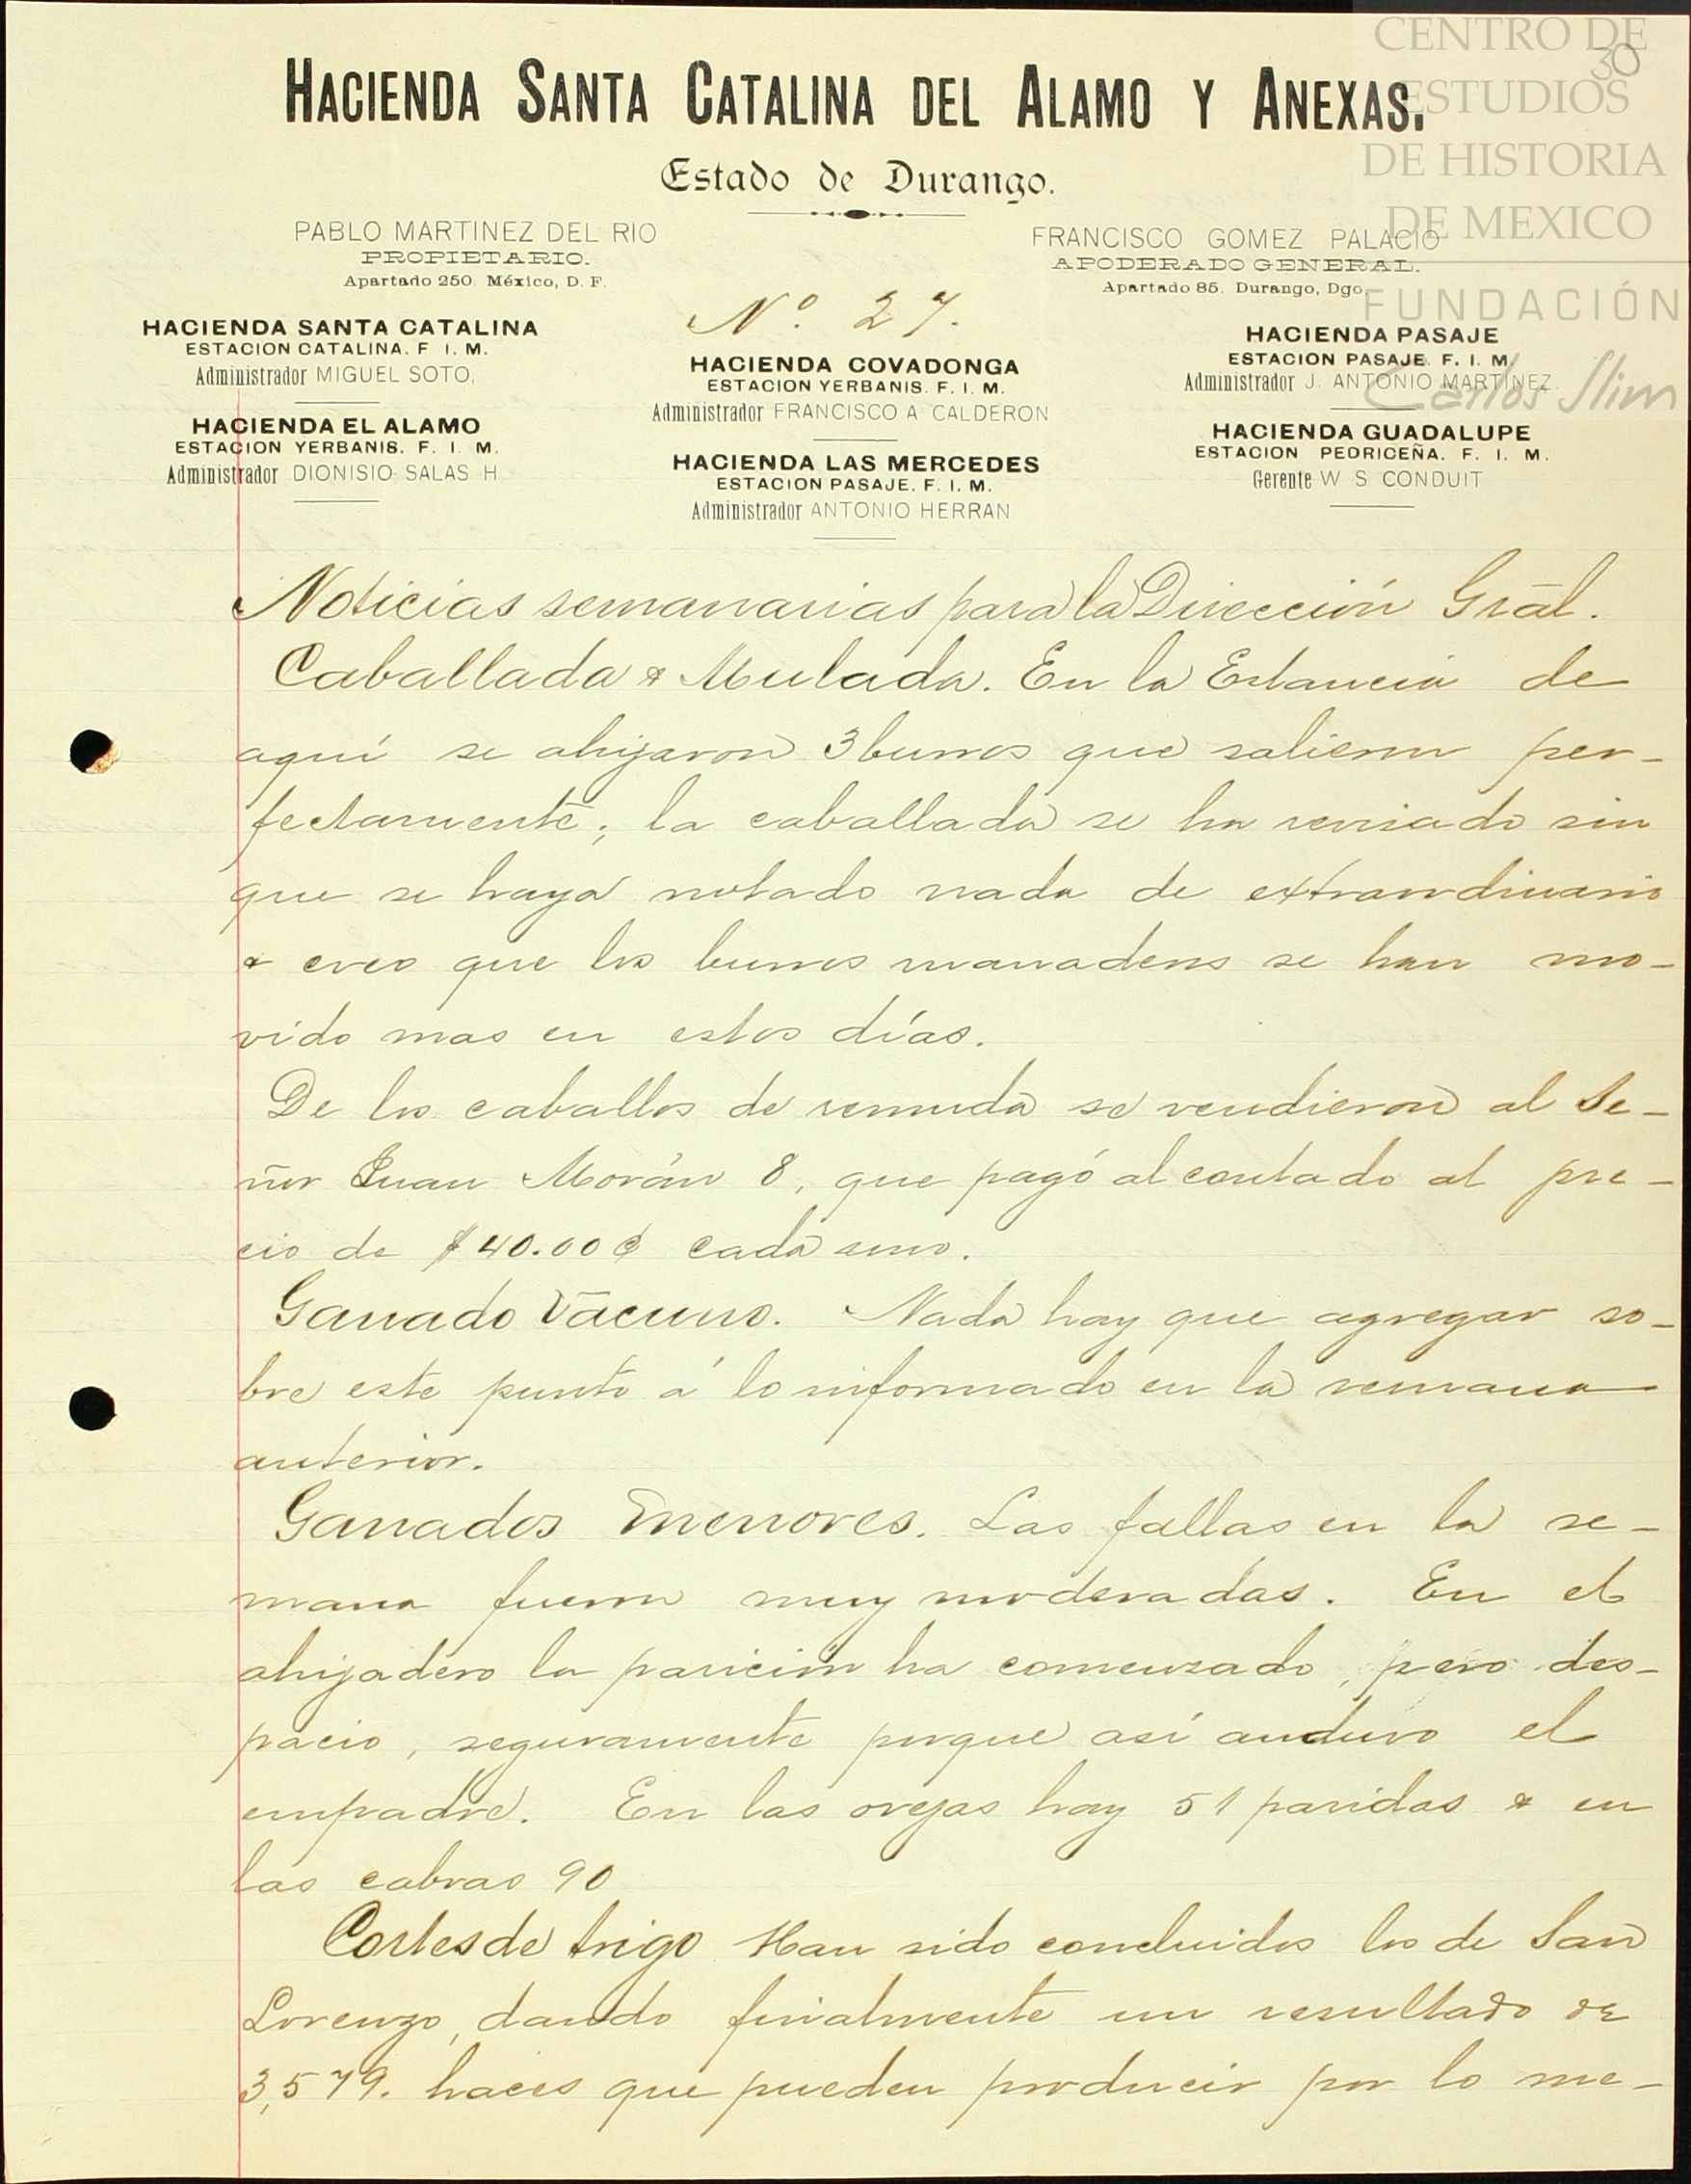 CENTRO DE
ESTUDIOS
DE HISTORIA
DE MEXICO
FUNDACIÓN
Carlos Slim
30
HACIENDA SANTA CATALINA DEL ALAMO Y ANEXAS.
Estado de Durango.
PABLO MARTINEZ DEL RIO
PROPIETARIO.
Apartado 250. México, D. F.
FRANCISCO GOMEZ PALACIO
APODERADO GENERAL.
Apartado 85. Durango, Dgo.
Nº. 27.
HACIENDA SANTA CATALINA
ESTACION CATALINA. F. I. M.
Administrador MIGUEL SOTO,
HACIENDA EL ALAMO
ESTACION YERBANIS. F. I. M.
Administrador DIONISIO SALAS H
HACIENDA COVADONGA
ESTACION YERBANIS. F. I. M.
Administrador FRANCISCO A. CALDERON
HACIENDA LAS MERCEDES
ESTACION PASAJE. F. I. M.
Administrador ANTONIO HERRAN
HACIENDA PASAJE
ESTACION PASAJE. F. I. M.
Administrador J. ANTONIO MARTINEZ.
HACIENDA GUADALUPE
ESTACION PEDRICEÑA. F. I. M.
Gerente W S CONDUIT
Noticias semanarias para la Dirección Gral.
Caballada & Mulada. En la Estancia de
aquí se ahijaron 3 burros que salieron per-
fectamente; la caballada se ha revisado sin
que se haya notado nada de extraordinario
& creo que los burros manaderos se han mo-
vido mas en estos días.
De los caballos de remuda se vendieron al Se-
ñor Juan Morán 8, que pagó al contado al pre-
cio de $40.00¢ cada uno.
Ganado Vacuno. Nada hay que agregar so-
bre este punto á lo informado en la semana
anterior.
Ganados menores. Las fallas en la se-
mana fueron muy moderadas. En el
ahijadero la parición ha comenzado, pero des-
pacio, seguramente porque así anduvo el
empadre. En las ovejas hay 51 paridas & en
las cabras 90
Cortes de trigo Han sido concluidos los de San
Lorenzo, dando finalmente un resultado de
3,579. haces que pueden producir por lo me-